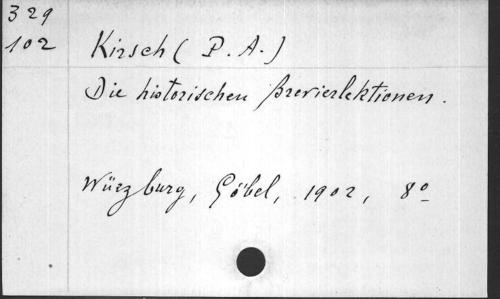 329
102 Kirsch (P. A.)
Die historischen Brevierlektionen.
Würzburg, Göbel, 1902, 8º